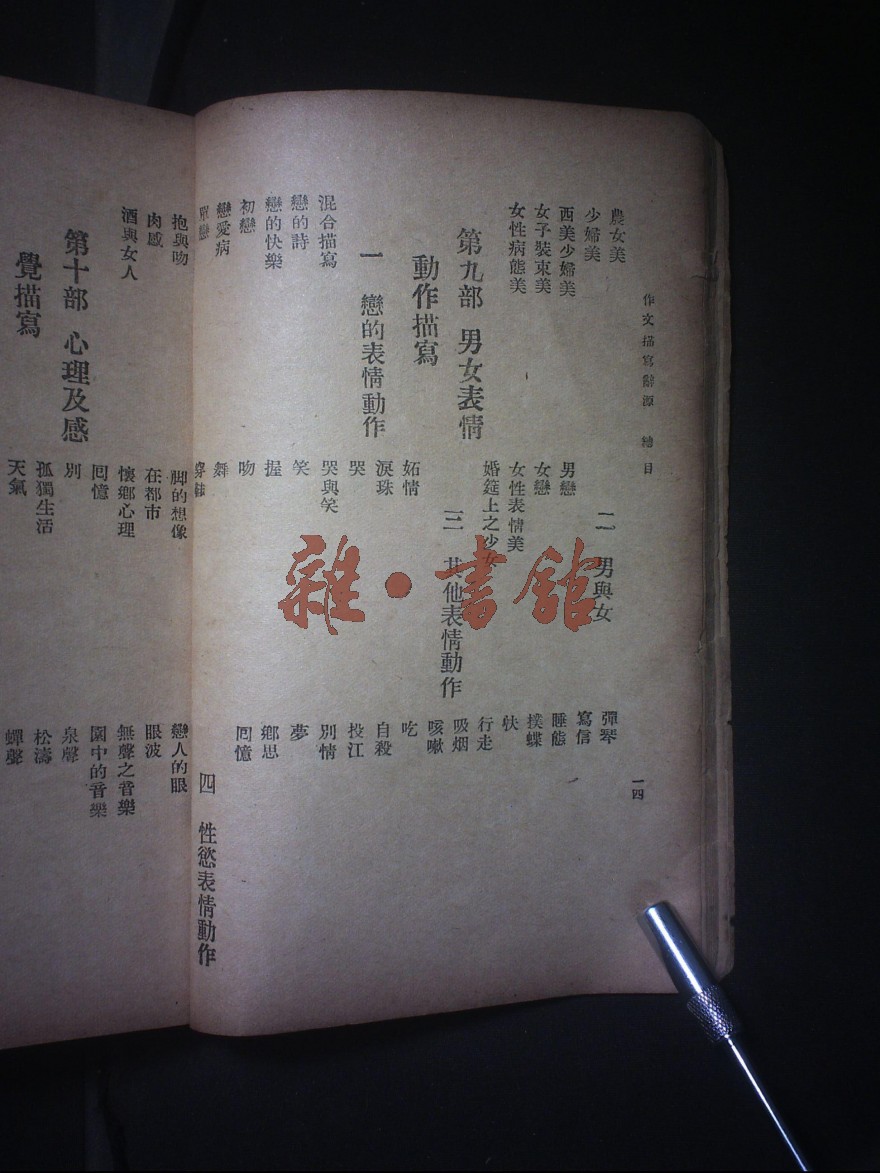 作文描寫辭源 總目
一四
農女美
少婦美
西美少婦美
女子裝束美
女性病態美
第九部 男女表情
動作描寫
一 戀的表情動作
混合描寫
戀的詩
戀的快樂
初戀
戀愛病
單戀
二 男與女
男戀
女戀
女性表情美
婚筵上之少女
三 其他表情動作
妬情
淚珠
哭
哭與笑
笑
握
吻
舞
彈琴
寫信
睡態
撲蝶
行走
吸烟
咳嗽
吃
自殺
投江
別情
夢
鄉思
囘憶
四 性慾表情動作
抱與吻
肉感
酒與女人
第十部 心理及感
覺描寫
脚的想像
在都市
懷鄉心理
囘憶
別
孤獨生活
天氣
戀人的眼
眼波
無聲之音樂
園中的音樂
泉聲
松濤
蟬聲
雜·書館